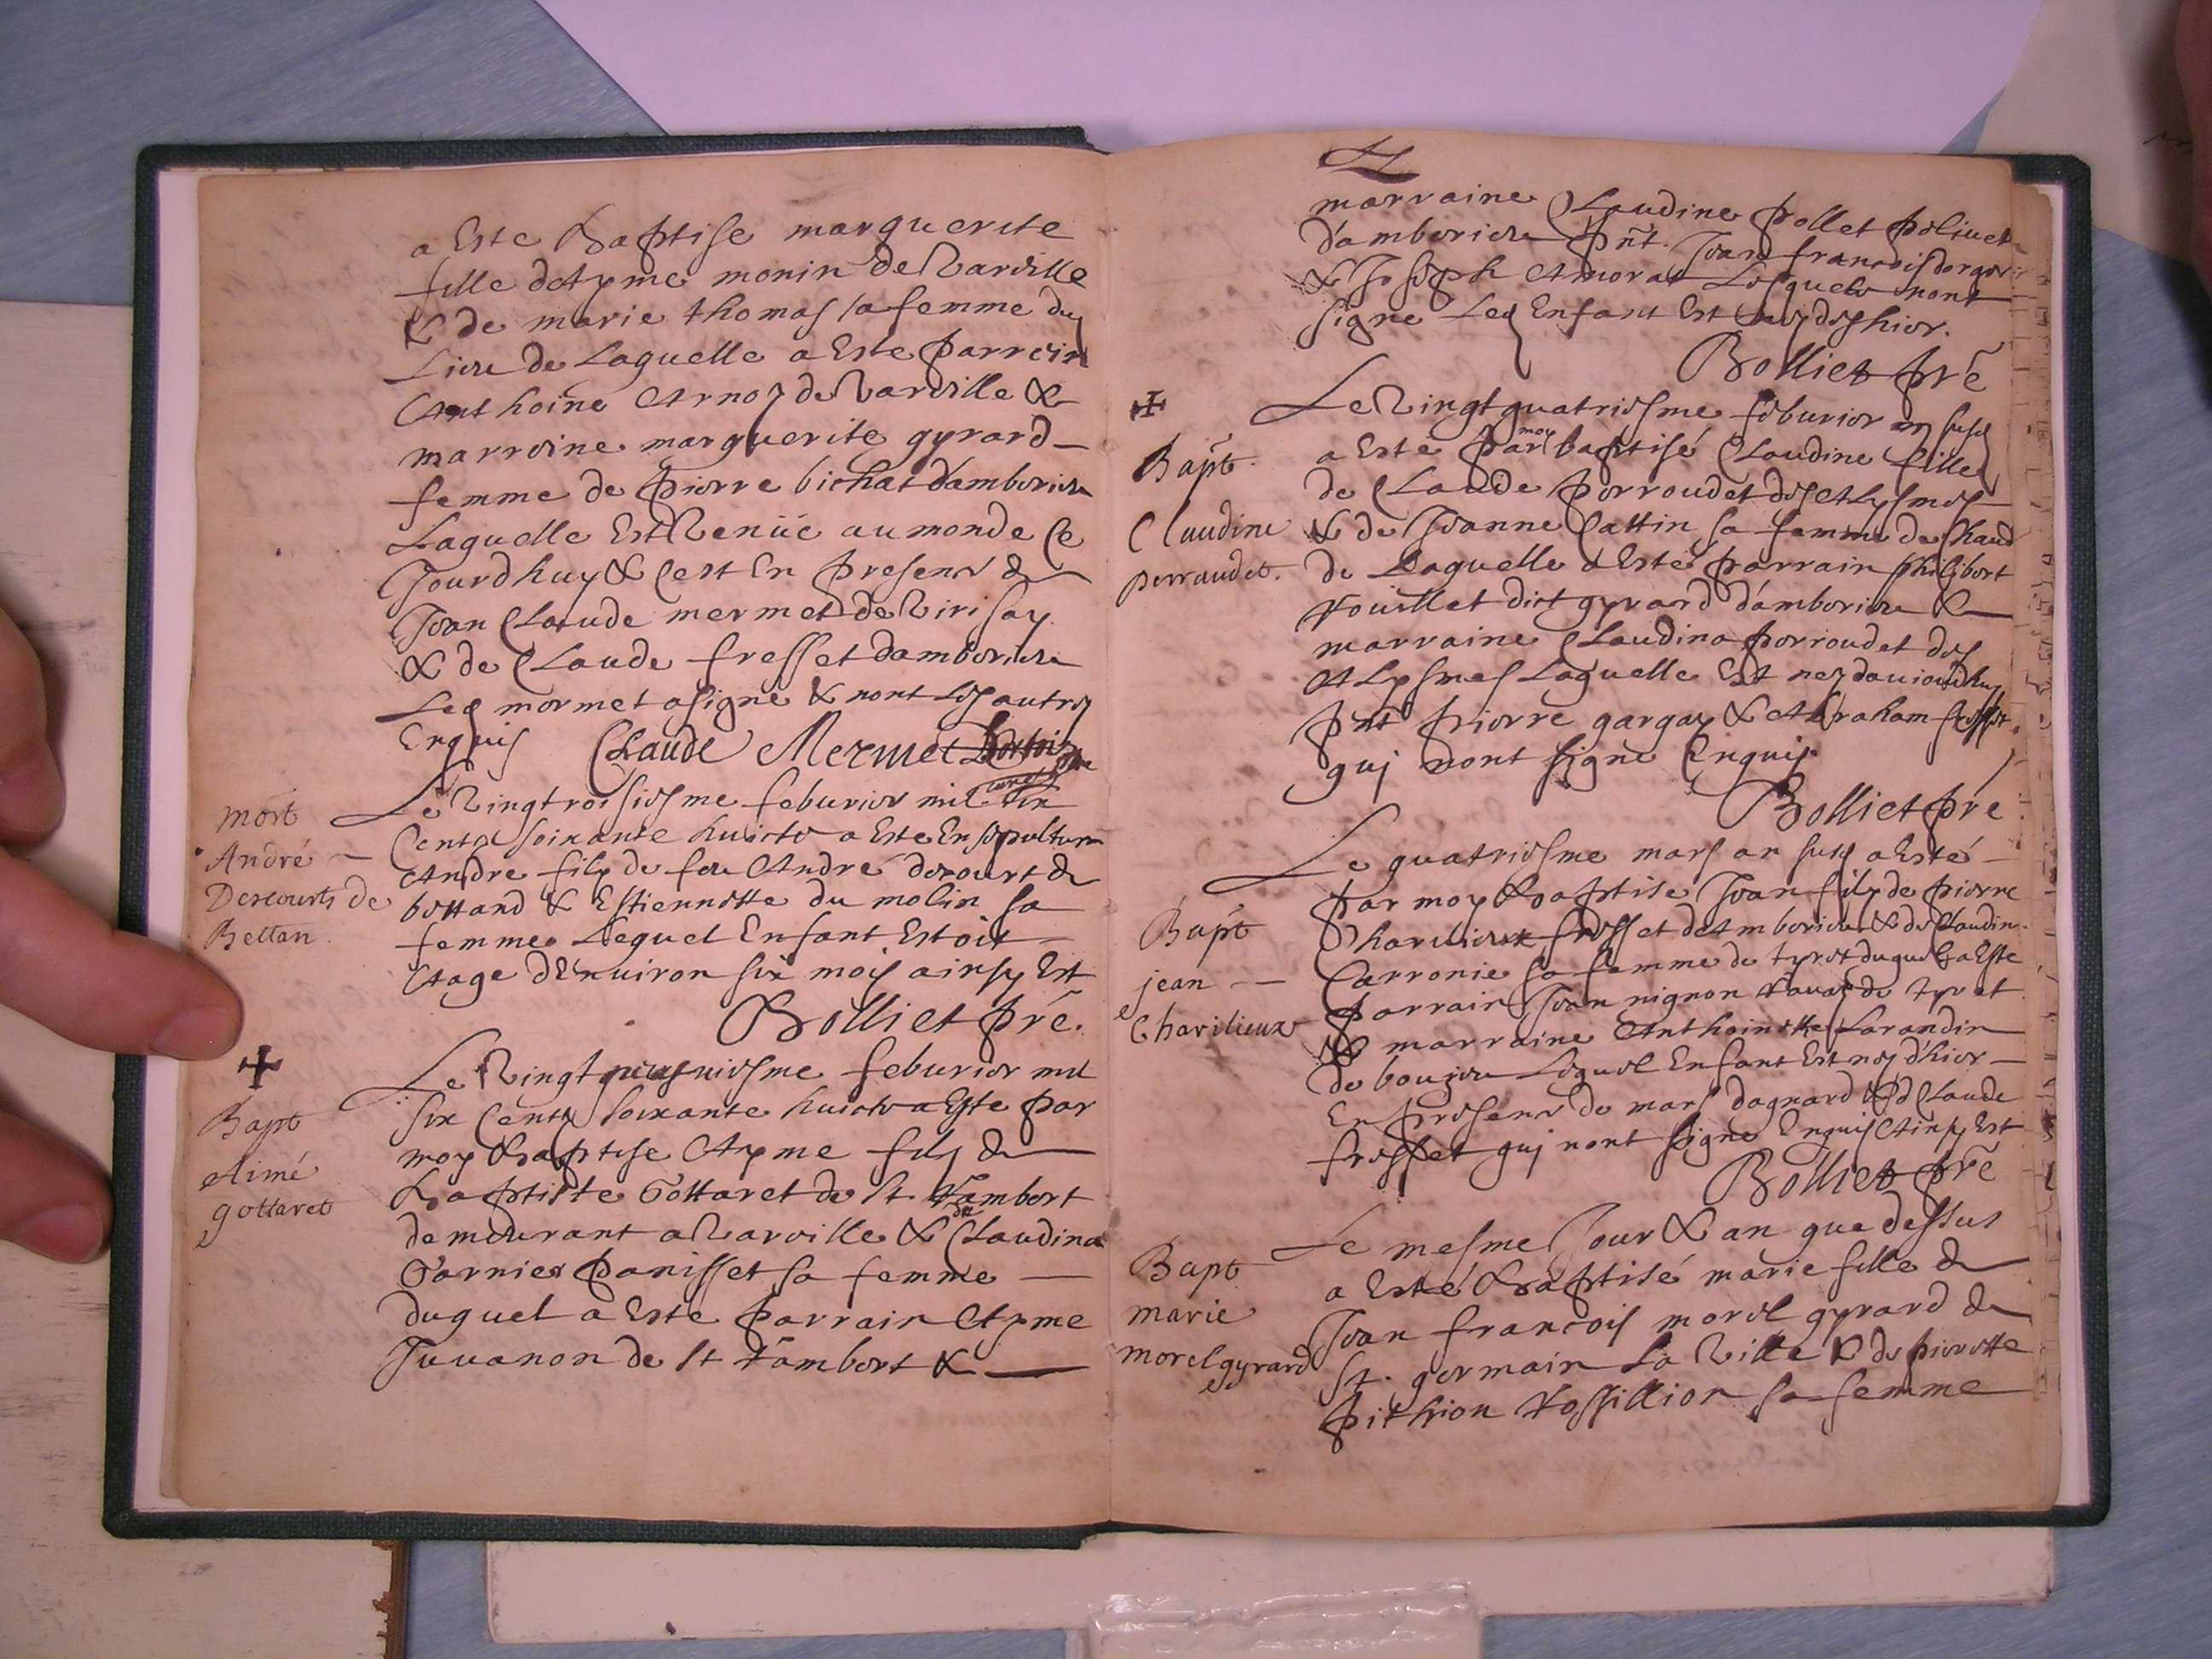 a Este Baptise marguerite
fille dAyme monin de Varville
& de marie thomas sa femme dud
Lieu de Laquelle a Este parrein
Anthoine Arnoz de Varville &
marroine marguerite gyrard
femme de pierre bichat damborieu
Laquelle Est Venüe au monde Ce
Jourdhuy & Cest En presence de
Jean Claude mermet de Virisay
& de Claude fresset damborieu
Led mermet a signe & nont Les autres
Enquis Claude Mermet
Le Vingtroisiesme feburier mil six
Cents soixante huicto a Este En sepulture
Andre fils de feu Andre decourt de
bettand & Estiennette du molin sa
femme Lequel Enfant Estoit
Aage dEnuiron six mois ainsy Est
Bolliet pre.
mort
André
Descourts de
Bettan.
Le Vingt feburier mil
six Cents soixante huicto a Este par
moy Baptise Ayme fils de
Baptiste Gottaret de St. Rambert
demeurant a Varville & de Claudina
Garnier panisset sa femme
duquel a Este parrain Ayme
Juuanon de St Rambert &
Bapt
Aimé
gottaret
marraine Claudine pollet poliuet
d'amborieu pnt. Jean francois
& Joseph Amorat Lesquels nont
signe Led Enfant Est nez dez hier.
Bolliet pre
Le Vingt quatriesme feburier an susd
a Esté par moy baptisé Claudine fille
de Claude perroudet des Alysmes
& de Jeanne Cattin sa femme de Chaud
de Laquelle a Esté parrain philibert
Vouillet dict gyrard d'amborieu &
marraine Claudina perroudet des
Alysmes Laquelle Est nez daujourdhuy
pnt pierre gargay & Abraham fresset
qui nont signe Enquis
Bolliet pre
Bapt.
Claudine
perraudet.
Le quatriesme mars an susd a Esté
par moy Baptise Jean fils de pierre
Charulieux fresset dAmborieu & de Claudine
Carronier sa femme de tyret duquel a Este
parrain Jean nignon Rauaz de tyret
& marraine Anthoinette Larandin
de boujeu Lequel Enfant Est nez d'hier
En presence de mars dagnard & d Claude
fresset qui nont signe Enquis Ainsy Est
Bolliet pre
Bapt
jean
Charilieux
Le mesme Jour & an que dessus
a Esté Baptisé marie fille de
Jean francois morel gyrard de
St. germain La Ville & de pierrette
pithion Vossillion sa femme
Bapt
marie
morel gyrard